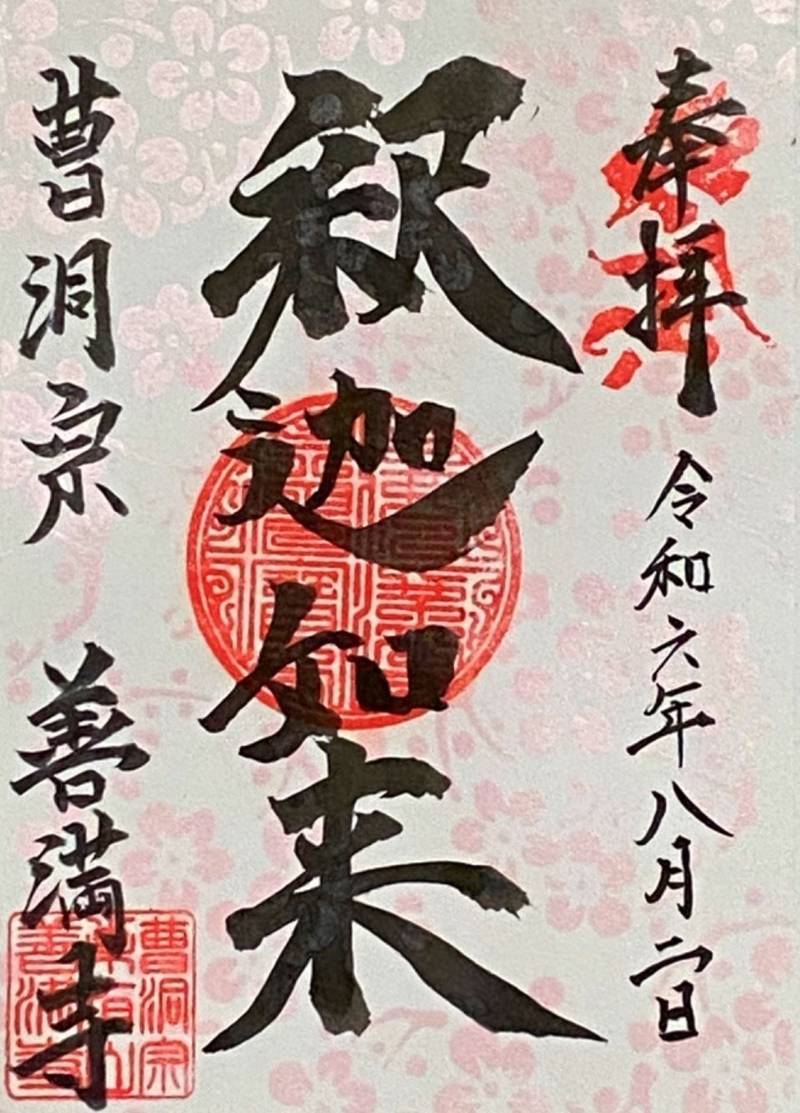 奉拝
令和六年八月二日
釈迦如来
曹洞宗
善満寺
曹洞宗